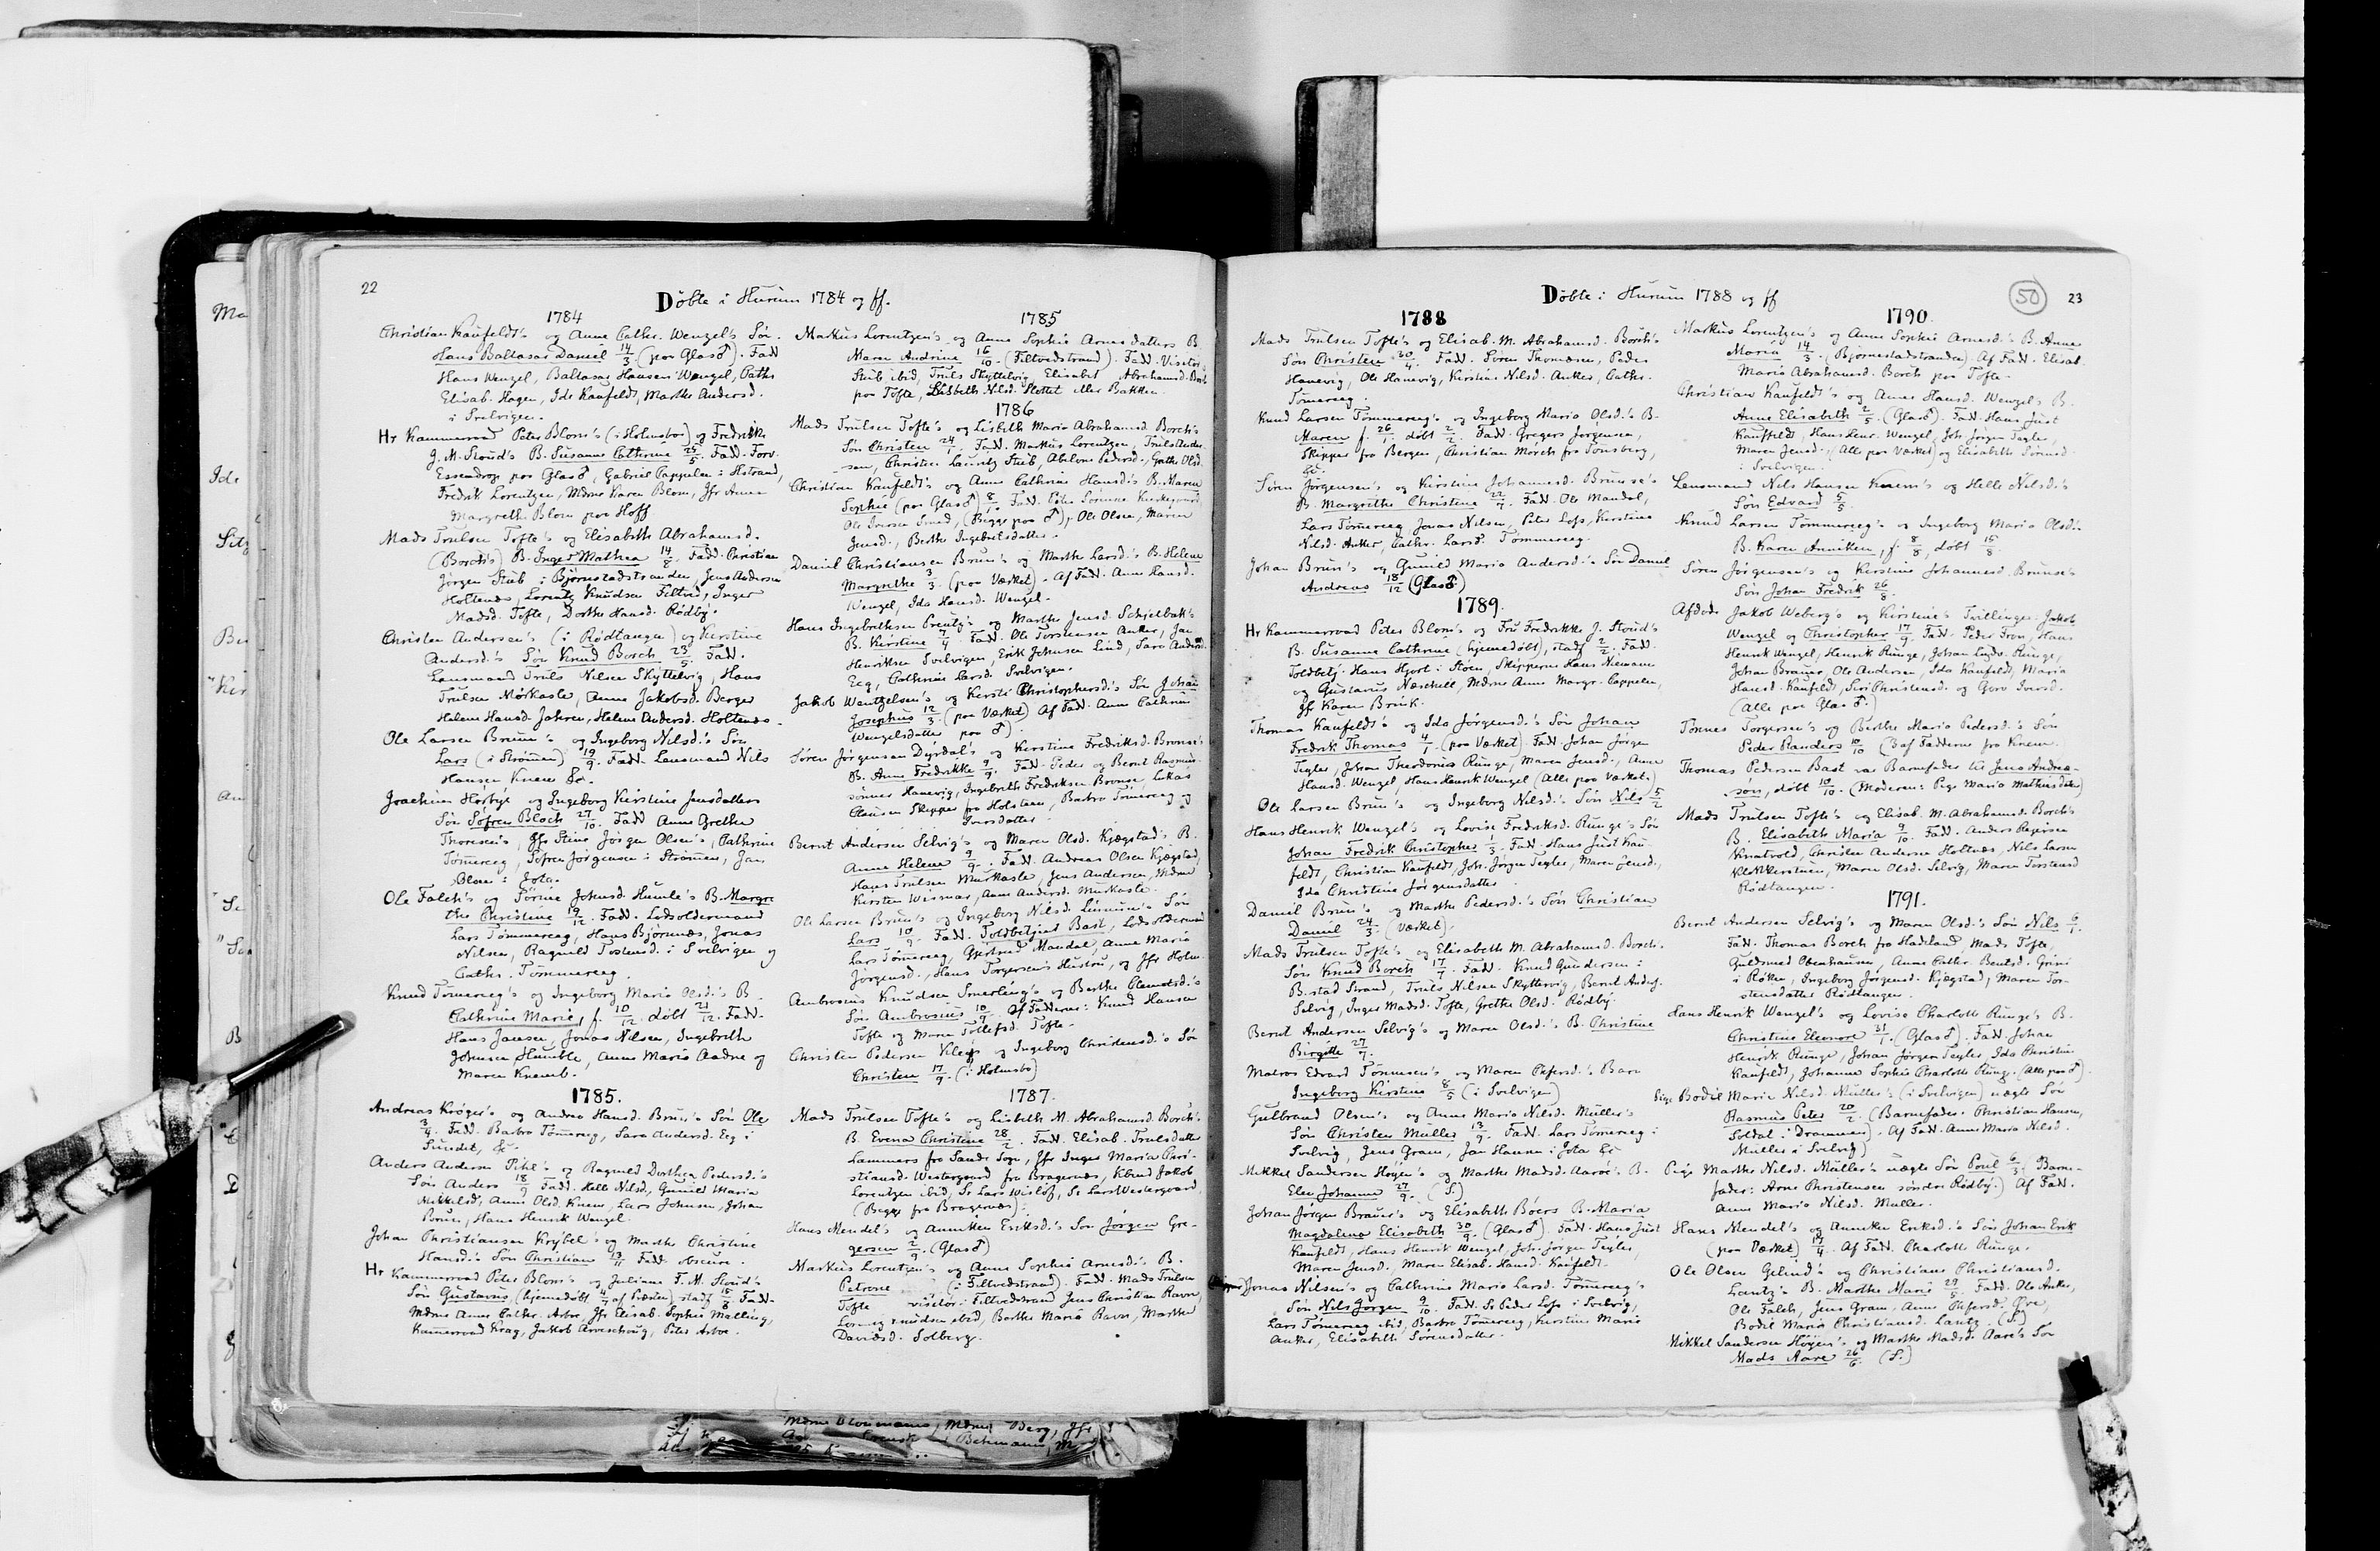 22
Döbte i Hurum 1784 og ff.
1784
Christian Kaufeldt's og Anne Cathr. Wenzel's Sön
Hans Baltasar Daniel 14/3 (paa Glas♂). Fadd
Hans Wenzel, Baltasar Hansen Wenzel, Cathr
Elisab. Hagen, Ide Kaufeldt, Marthe Andersd.
i Svelvigen.
Hr Kammerraad Peter Blom's (i Holmsbo) og Fredrikke
J. M. Stoud's B. Susanne Cathrine 25/5. Fadd. Forv.
Essendrop paa Glas♂, Gabriel Cappelen i Holstrand,
Fredrik Lorentzen, Mdme Karen Blom, Jfr Anne
Margrethe Blom paa Hoff
Mads Trulsen Tofte's og Elisabeth Abrahamsd.
(Borch's) B. Inger Mathea 14/8. Fadd. Christian
Jörgen Stub i Björnstadstranden, Jens Andersen
Holtenæs, Lorentz Knudsen Filtved, Inger
Madsd. Tofte, Dorthe Hansd. Rödby.
Christen Andersen's (i Rödtangen) og Kirstine
Andersd.'s Sön Knud Borch 23/5. Fadd.
Lensmand Truls Nilsen Skyttelvig, Hans
Trulsen Mörkasle, Anne Jakobsd. Berger
Helene Hansd. Jahren, Helene Andersd. Holtenæs.
Ole Larsen Bruun's og Ingeborg Nilsd.'s Sön
Lars (i Strömmen) 19/9. Fadd. Lensmand Nils
Hansen Knem &c.
Joachim Hörbye og Ingeborg Kirstine Jensdatters
Sön Söfren Bloch 27/10. Fadd Anne Grethe
Thoresen's, Jfr Stine Jörgen Olsen's, Cathrine
Tömmereg, Söfren Jörgensen i Strömmen, Jan
Olsen i Jota.
Ole Falch's og Törine Johnsd. Humle's B. Margre
the Christine 19/12. Fadd. Lodsoldermand
Lars Tömmereeg, Hans Björnnæs, Jonas
Nilsen, Ragnild Tostensd. i Svelvigen og
Cathr. Tömmereeg.
Knud Tömereeg's og Ingeborg Marie Olsd.'s B.
Cathrine Marie, f. 10/12 döbt 21/12. Fadd.
Hans Jansen, Jonas Nilsen, Ingebreth
Johnsen Humble, Anne Marie Aadne og
Maren Knemb.
1785.
Andreas Kröger's og Andrea Hansd. Bruun's Sön Ole
3/4. Fadd. Barbro Tömereg, Sara Andersd. Eeg i
Sundet, &c.
Anders Andersen Pihl's og Ragnild Dorthea Pedersd.'s
Sön Anders 18/9 Fadd. Helle Nilsd., Gunild Maria
Mikkelsd, Anne Olsd. Knem, Lars Johnsen, Johan
Bruun, Hans Henrik Wenzel.
Johan Christiansen Krybel's og Marthe Christine
Hansd.'s Sön Christian 13/11 Fadd. obscure.
Hr Kammerraad Peter Blom's og Juliane F. M. Stoud's
Sön Gustavus, (hjemmedöbt 4/7 af Præsten) stadf 15/8 Fadd.
Mdme Anne Cathr. Arbo, Jfr Elisab. Sophie Malling,
Kammerraad Krag, Jakob Arveschoug, Peter Arbo.
1785
Markus Lorentzen's og Anne Sophie Arnesdatters B.
Maren Andrine 16/10. (Filtvedstrand). Fadd. Visitör
Stub ibid, Truls Skyttelvig, Elisabet Abrahamsd. Borch
paa Tofte, Lisbeth Nilsd. Slottet eller Bakken.
1786
Mads Trulsen Tofte's og Lisbeth Maria Abrahamsd. Borch's
Sön Christen 24/1. Fadd. Markus Lorentzen, Truls Ander-
sen, Christen Lauritz Stub, Abelone Pedersd., Grethe Olsd.
Christian Kaufeldt's og Anne Cathrine Hansd.'s B. Maren
Sophie (paa Glas♂) 8/1. Fadd. Peter Sörensen
Ole Iversen Smed, (Begge paa ♂), Ole Olsen, Maren
Jensd., Berthe Ingebretsdatter.
Daniel Christiansen Bruun's og Marthe Larsd.'s B. Helene
Margrethe 3/3. (paa Værket). Af Fadd. Anne Hansd.
Wenzel, Ida Hansd. Wenzel.
Hans Ingebrethsen Preutz's og Marthe Jensd. Schjelbak's
B. Kirstine 7/4. Fadd. Ole Torstensen Anker, Jan
Henriksen Svelvigen, Erik Johnsen Lind, Sara Andersd.
Eeg, Cathrine Larsd. Svelvigen.
Jakob Wentzelsen's og Kersti Christophersd.'s Sön Johan
Josephus 12/3. (paa Værket) Af Fadd. Anne Cathrine
Wenzelsdatter paa ♂).
Sören Jörgensen Dyrdal's og Kirstine Fredriksd. Brønse's
B. Anne Fredrikke 9/9. Fadd. Peder og Bernt Rasmus-
sönner Hanevig, Ingebreth Fredriksen Brønse, Lukas
Clausen Skipper fra Holsteen, Barbro Tömereeg og
Iversdatter
Bernt Andersen Selvig's og Maren Olsd. Kjægstad's B.
Anne Helene 9/9. Fadd. Andreas Olsen Kjægstad,
Hans Trulsen Murkasle, Jens Andersen, Mdme
Kirsten Wismar, Anne Andersd. Murkasle.
Ole Larsen Bruun's og Ingeborg Nilsd. Linnum's Sön
Lars 10/9. Fadd. Toldbetjent Bast, Lodsoldermand
Lars Tömereeg, Gjertrud Mandal, Anne Maria
Jörgensd., Hans Torgersen's Hustru, og Jfr Holm.
Ambrosius Knudsen Smerling's og Berthe Clemetsd.'s
Sön Ambrosius 10/9. Af Fadderne: Knud Hansen
Tofte og Maren Tollefsd. Tofte.
Christen Pedersen Kleng's og Ingeborg Christensd.'s Sön
Christen 17/9. (i Holmsbo)
1787.
Mads Trulsen Tofte's og Lisbeth M. Abrahamsd. Borch's
B. Evena Christine 28/2. Fadd. Elisab. Trulsdatter
Lammers fra Sande Sogn, Jfr Inger Maria Chri-
stiansd. Westergaard fra Bragernæs, Kbmd Jakob
Lorentzen ibid, Sr Lars Wislöf, Sr Lars Westergaard
(Begge fra Bragernæs).
Hans Mendel's og Anniken Eriksd.'s Sön Jörgen Gre-
gersen 2/9. (Glas♂)
Markus Lorentzen's og Anne Sophie Arnesd.'s B.
Petrone (i Filtvedstrand). Fadd. Mads Trulsen
Tofte visitör i Filtvedstrand Jens Christian Ravn,
Knudsen ibid, Berthe Maria Ravn, Marthe
Davidsd. Solberg.
Döbte i Hurum 1788 og ff
50
23
1788
Mads Trulsen Tofte's og Elisab. M. Abrahamsd. Borch's
Sön Christen 30/4. Fadd. Sören Thomesen, Peder
Hanevig, Ole Hanevig, Kirstine Nilsd. Anker, Cathr.
Tömereeg.
Knud Larsen Tömmereeg's og Ingeborg Maria Olsd.'s B.
Maren f. 26/1. döbt 2/2. Fadd. Gregers Jörgensen,
Skipper fra Bergen, Christian Mörch fra Tönsberg,
&c.
Sören Jörgensen's og Kirstine Johannesd. Brunse's
B. Margrethe Christine 22/7. Fadd. Ole Mandal,
Lars Tömereeg Jonas Nilsen, Peter Lofs, Kirstine
Nilsd. Anker, Cathr. Larsd. Tömmereeg.
Johan Brun's og Gunild Maria Andersd.'s Sön Daniel
Andreas 18/12 (Glas♂)
1789.
Hr Kammerraad Peter Blom's og Fru Fredrikke J. Stoud's
B. Susanne Cathrine (hjemmedöbt), stadf 2/2. Fadd.
Toldbetj. Hans Hjort i Støen, Skipperne Hans Niemann
og Gustavus Næschell, Mdme Anne Margr. Cappelen,
Jfr Karen Brink.
Thomas Kaufeldt's og Ida Jörgensd.'s Sön Johan
Fredrik Thomas 4/1. (paa Værket). Fadd. Johan Jörgen
Tegler, Johan Theodorius Runge, Maren Jensd., Anne
Hansd. Wenzel, Hans Henrik Wenzel (Alle paa Værket.)
Ole Larsen Brun's og Ingeborg Nilsd.'s Sön Nils 5/2
Hans Henrik Wenzel's og Lovise Fredriksd. Runge's Sön
Johan Fredrik Christopher 1/3. Fadd. Hans Just Kau-
feldt, Christian Kaufeldt, Joh. Jörgen Tegler, Maren Jensd.,
Ida Christine Jörgensdatter.
Daniel Brun's og Marthe Pedersd.'s Sön Christian
Daniel 24/3. (Værket).
Mads Trulsen Tofte's og Elisabeth M. Abrahamsd. Borch's
Sön Knud Borch 17/7. Fadd. Knud Gundersen i
B.stad Strand, Truls Nilsen Skyttervig, Bernt Anders.
Selvig, Inger Madsd. Tofte, Grethe Olsd. Rödby.
Bernt Andersen Selvig's og Maren Olsd.'s B. Christine
Birgitte 27/7.
Matros Edvard Tönnesen's og Maren Ohfersd.'s Barn
Ingeborg Kirstine 8/5 (i Svelvigen)
Gulbrand Olsen's og Anne Maria Nilsd. Müller's
Sön Christen Müller 13/9. Fadd. Lars Tömereeg i
Svelvig, Jens Gram, Jan Hansen i Jota &c
Mikkel Sandersen Höyen's og Marthe Madsd. Aarö's B.
Elen Johanne 27/9. (S.)
Johan Jörgen Brauer's og Elisabeth Böers B. Maria
Magdalena Elisabeth 30/9. (Glas♂). Fadd. Hans Just
Kaufeldt, Hans Henrik Wenzel, Joh. Jörgen Tegler,
Maren Jensd., Maren Elisab. Hansd. Kaufeldt.
Jonas Nilsen's og Cathrine Maria Larsd. Tömereeg's
Sön Nils Jörgen 9/10. Fadd. Sr Peder Lofs i Svelvig,
Lars Tömereeg ibid, Barbro Tömereeg, Kirstine Maria
Anker, Elisabeth Sörensdatter.
1790.
Markus Lorentzen's og Anne Sophie Arnesd.'s B. Anne
Maria 14/3. (Björnestadstranden) Af Fadd. Elisab.
Maria Abrahamsd. Borch paa Tofte.
Christian Kaufeldt's og Anne Hansd. Wenzel's B.
Anne Elisabeth 2/5. (Glas♂). Fadd. Hans Just
Kauffeldt, Hans Henr. Wenzel, Joh. Jörgen Tegler,
Maren Jensd. (Alle paa Værket) og Elisabeth Sörensd.
i Svelvigen.
Lensmand Nils Hansen Knem's og Helle Nilsd.'s
Sön Edvard 5/5.
Knud Larsen Tömmereeg's og Ingeborg Maria Olsd.'s
B. Karen Anniken, f. 8/8, döbt 15/8.
Sören Jörgensen's og Kirstine Johannesd. Brunse's
Sön Johan Fredrik 26/8.
Afdöde Jakob Weberg's og Kirstine's Tvillinger Jakob
Wenzel og Christopher 17/9. Fadd. Peder Fron, Hans
Henrik Wenzel, Henrik Runge, Johan Ludv. Runge,
Johan Brauer, Ole Andersen, Ida Kaufeldt, Maria
Hansd. Kaufeldt, Siri Christensd. og Goro Iversd.
(Alle paa Glas ♂.)
Tönnes Torgersen's og Berthe Maria Pedersd.'s Sön
Peder Randers 10/10 (3 af Fadderne fra Knem.
Thomas Pedersen Bast var Barnefader til Jens Andrea-
son, döbt 10/10. (Moderen: Pige Maria Mathiasdatter)
Mads Trulsen Tofte's og Elisab. M. Abrahamsd. Borch's
B. Elisabeth Maria 9/10. Fadd. Anders
Knatvold, Christen Andersen Holtnæs, Nils Larsen
Klokkerstuen, Maren Olsd. Selvig, Maren Torstensd
Rödtangen.
1791.
Bernt Andersen Selvig's og Maren Olsd.'s Sön Nils 6/1.
Fadd. Thomas Borch fra Hadeland, Mads Tofte,
Guldsmed Obenhausen, Anne Cathr. Bentsd. Grini
i Röken, Ingeborg Jörgensd. Kjægstad, Maren Tor-
stensdatter Rödtangen.
Hans Henrik Wenzel's og Lovise Charlotte Runge's B.
Christine Eleonore 31/1. (Glas♂). Fadd. Johan
Henrik Runge, Johan Jörgen Tegler, Ida Christine
Kaufeldt, Johanne Sophie Charlotte Runge. (Alle paa ♂)
Pige Bodil Marie Nilsd. Müller's (i Svelvigen) uægte Sön
Rasmus Peter 20/2. (Barnefader: Christian Hansen,
Soldat i Drammen). Af Fadd. Anne Maria Nilsd.
Müller i Svelvig)
Pige Marthe Nilsd. Müller's uægte Sön Poul 6/3. Barne-
fader: Arne Christensen söndre Rödby.) Af Fadd.
Anne Maria Nilsd. Müller.
Hans Mendel's og Anneken Eriksd.'s Sön Johan Erik
(paa Værket) 17/4. Af Fadd. Charlotte Runge.
Ole Olsen Gelind's og Christiane Christiansd.
Lautz's B. Marthe Marie 29/5. Fadd. Ole Anker,
Ole Falch, Jens Gram, Anne Ohfersd. Öre,
Bodil Maria Christiansd. Lautz. (S.)
Mikkel Sandersen Höyen's og Marthe Madsd. Aarö's Sön
Mads Aarö 26/6. (S.)